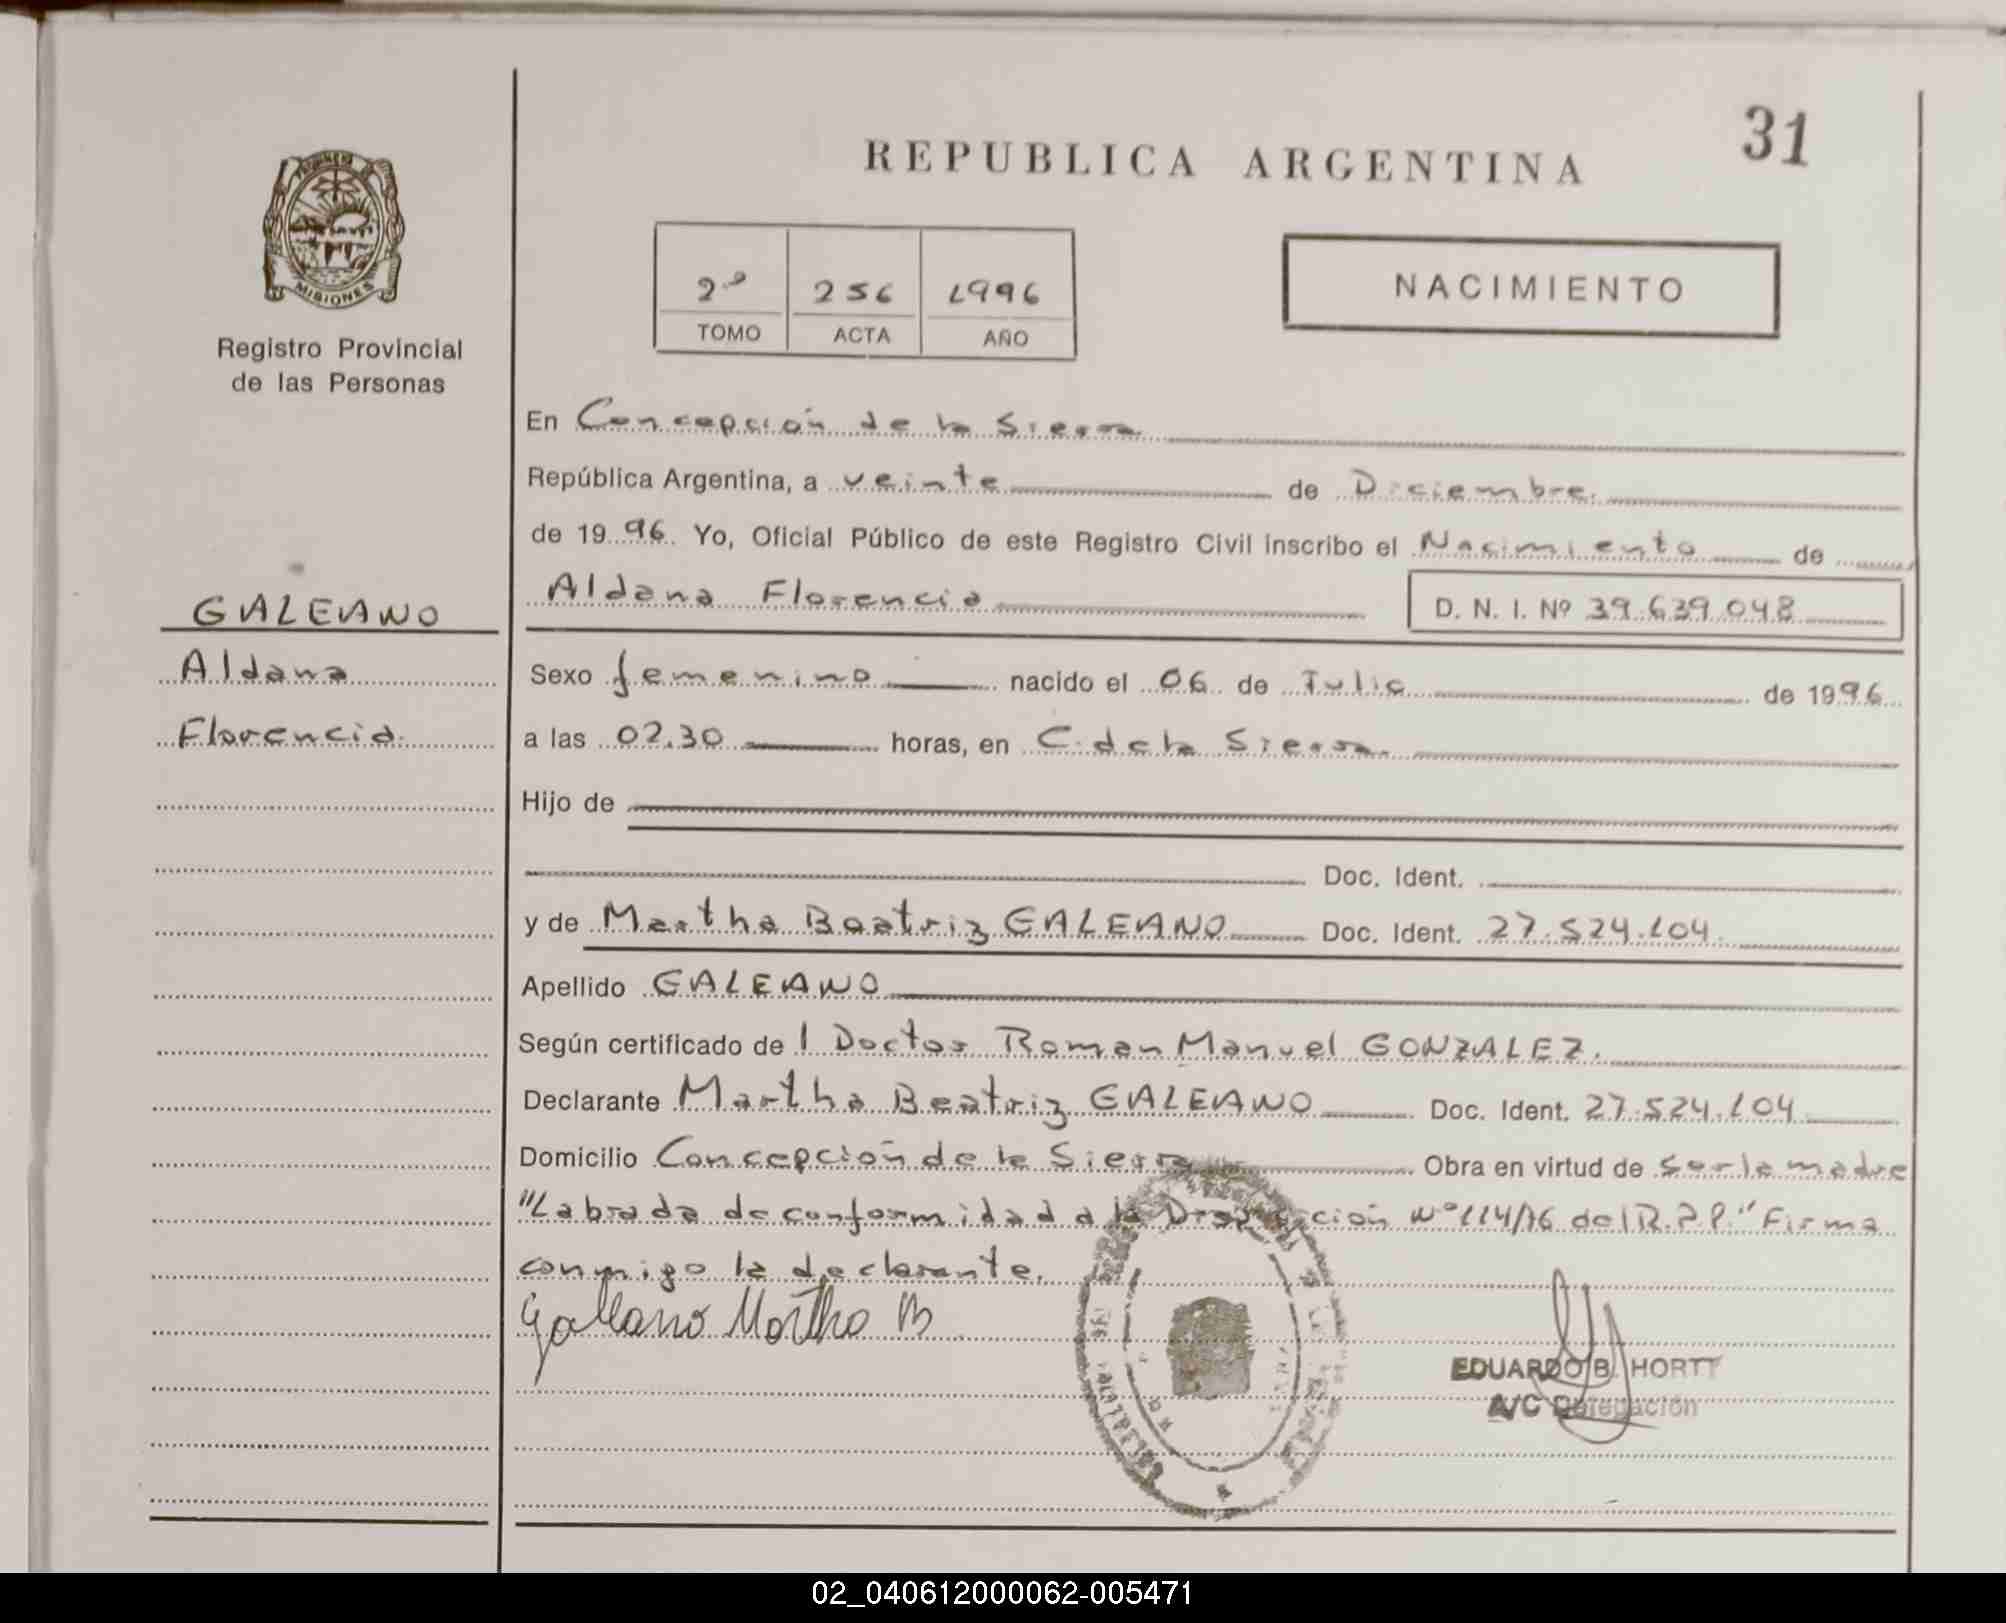 REPUBLICA ARGENTINA
31
MISIONES
Registro Provincial
de las Personas
2º 256 1996
TOMO ACTA AÑO
NACIMIENTO
En Concepción de la Sierra
República Argentina, a veinte de Diciembre.
de 1996. Yo, Oficial Público de este Registro Civil inscribo el Nacimiento de
Aldana Florencia D. N. I. Nº 39.639.048
GALEANO
Aldana
Florencia.
Sexo femenino nacido el 06 de Julio de 1996
a las 02.30 horas, en C. de la Sierra.
Hijo de
Doc. Ident.
y de Martha Beatriz GALEANO Doc. Ident. 27.524.104.
Apellido GALEANO
Según certificado de l Doctor Roman Manuel GONZALEZ.
Declarante Martha Beatriz GALEANO Doc. Ident. 27.524.104
Domicilio Concepción de la Sierra Obra en virtud de ser la madre
"Labrada de conformidad a la Disposición Nº 114/96 del R.P.P." Firma
conmigo la declarante.
Galeano Martha B
EDUARDO B. HORTT
A/C Delegación
02_040612000062-005471